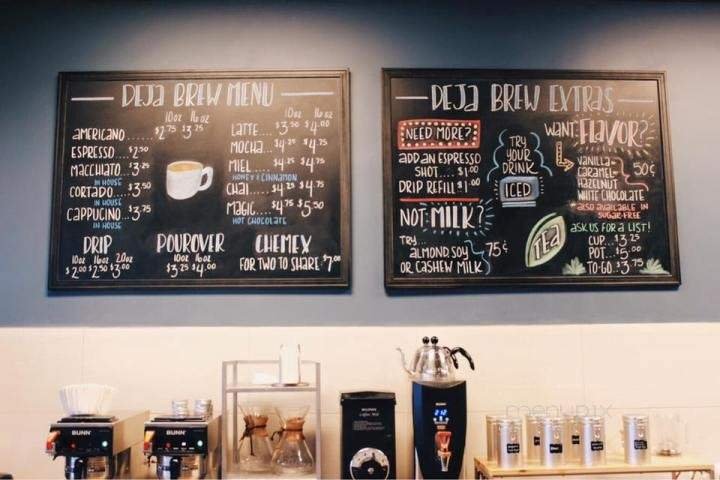 DEJA BREW MENU
10oz 16oz
AMERICANO......$2.75 $3.25
ESPRESSO....$2.50
MACCHIATO...$3.25
IN HOUSE
CORTADO...$3.50
IN HOUSE
CAPPUCINO...$3.75
IN HOUSE
10oz 16oz
LATTE....$3.50 $4.00
MOCHA...$4.25 $4.75
MIEL.....$4.25 $4.75
HONEY & CINNAMON
CHAI.....$4.25 $4.75
MAGIC....$4.75 $5.50
HOT CHOCOLATE
DRIP
10oz 16oz 20oz
$2.00 $2.50 $3.00
POUROVER
10oz 16oz
$3.25 $4.00
CHEMEX
FOR TWO TO SHARE $7.00
DEJA BREW EXTRAS
NEED MORE?
ADD AN ESPRESSO
SHOT....$1.00
DRIP REFILL $1.00
NOT MILK?
TRY...
ALMOND, SOY
OR CASHEW MILK
75¢
TRY
YOUR
DRINK
ICED
WANT FLAVOR?
VANILLA
CARAMEL
HAZELNUT
WHITE CHOCOLATE
50¢
*ALSO AVAILABLE IN
SUGAR-FREE
TEA
ASK US FOR A LIST!
CUP...$3.25
POT...$5.00
TO-GO..$3.75
BUNN
BUNN
menupix